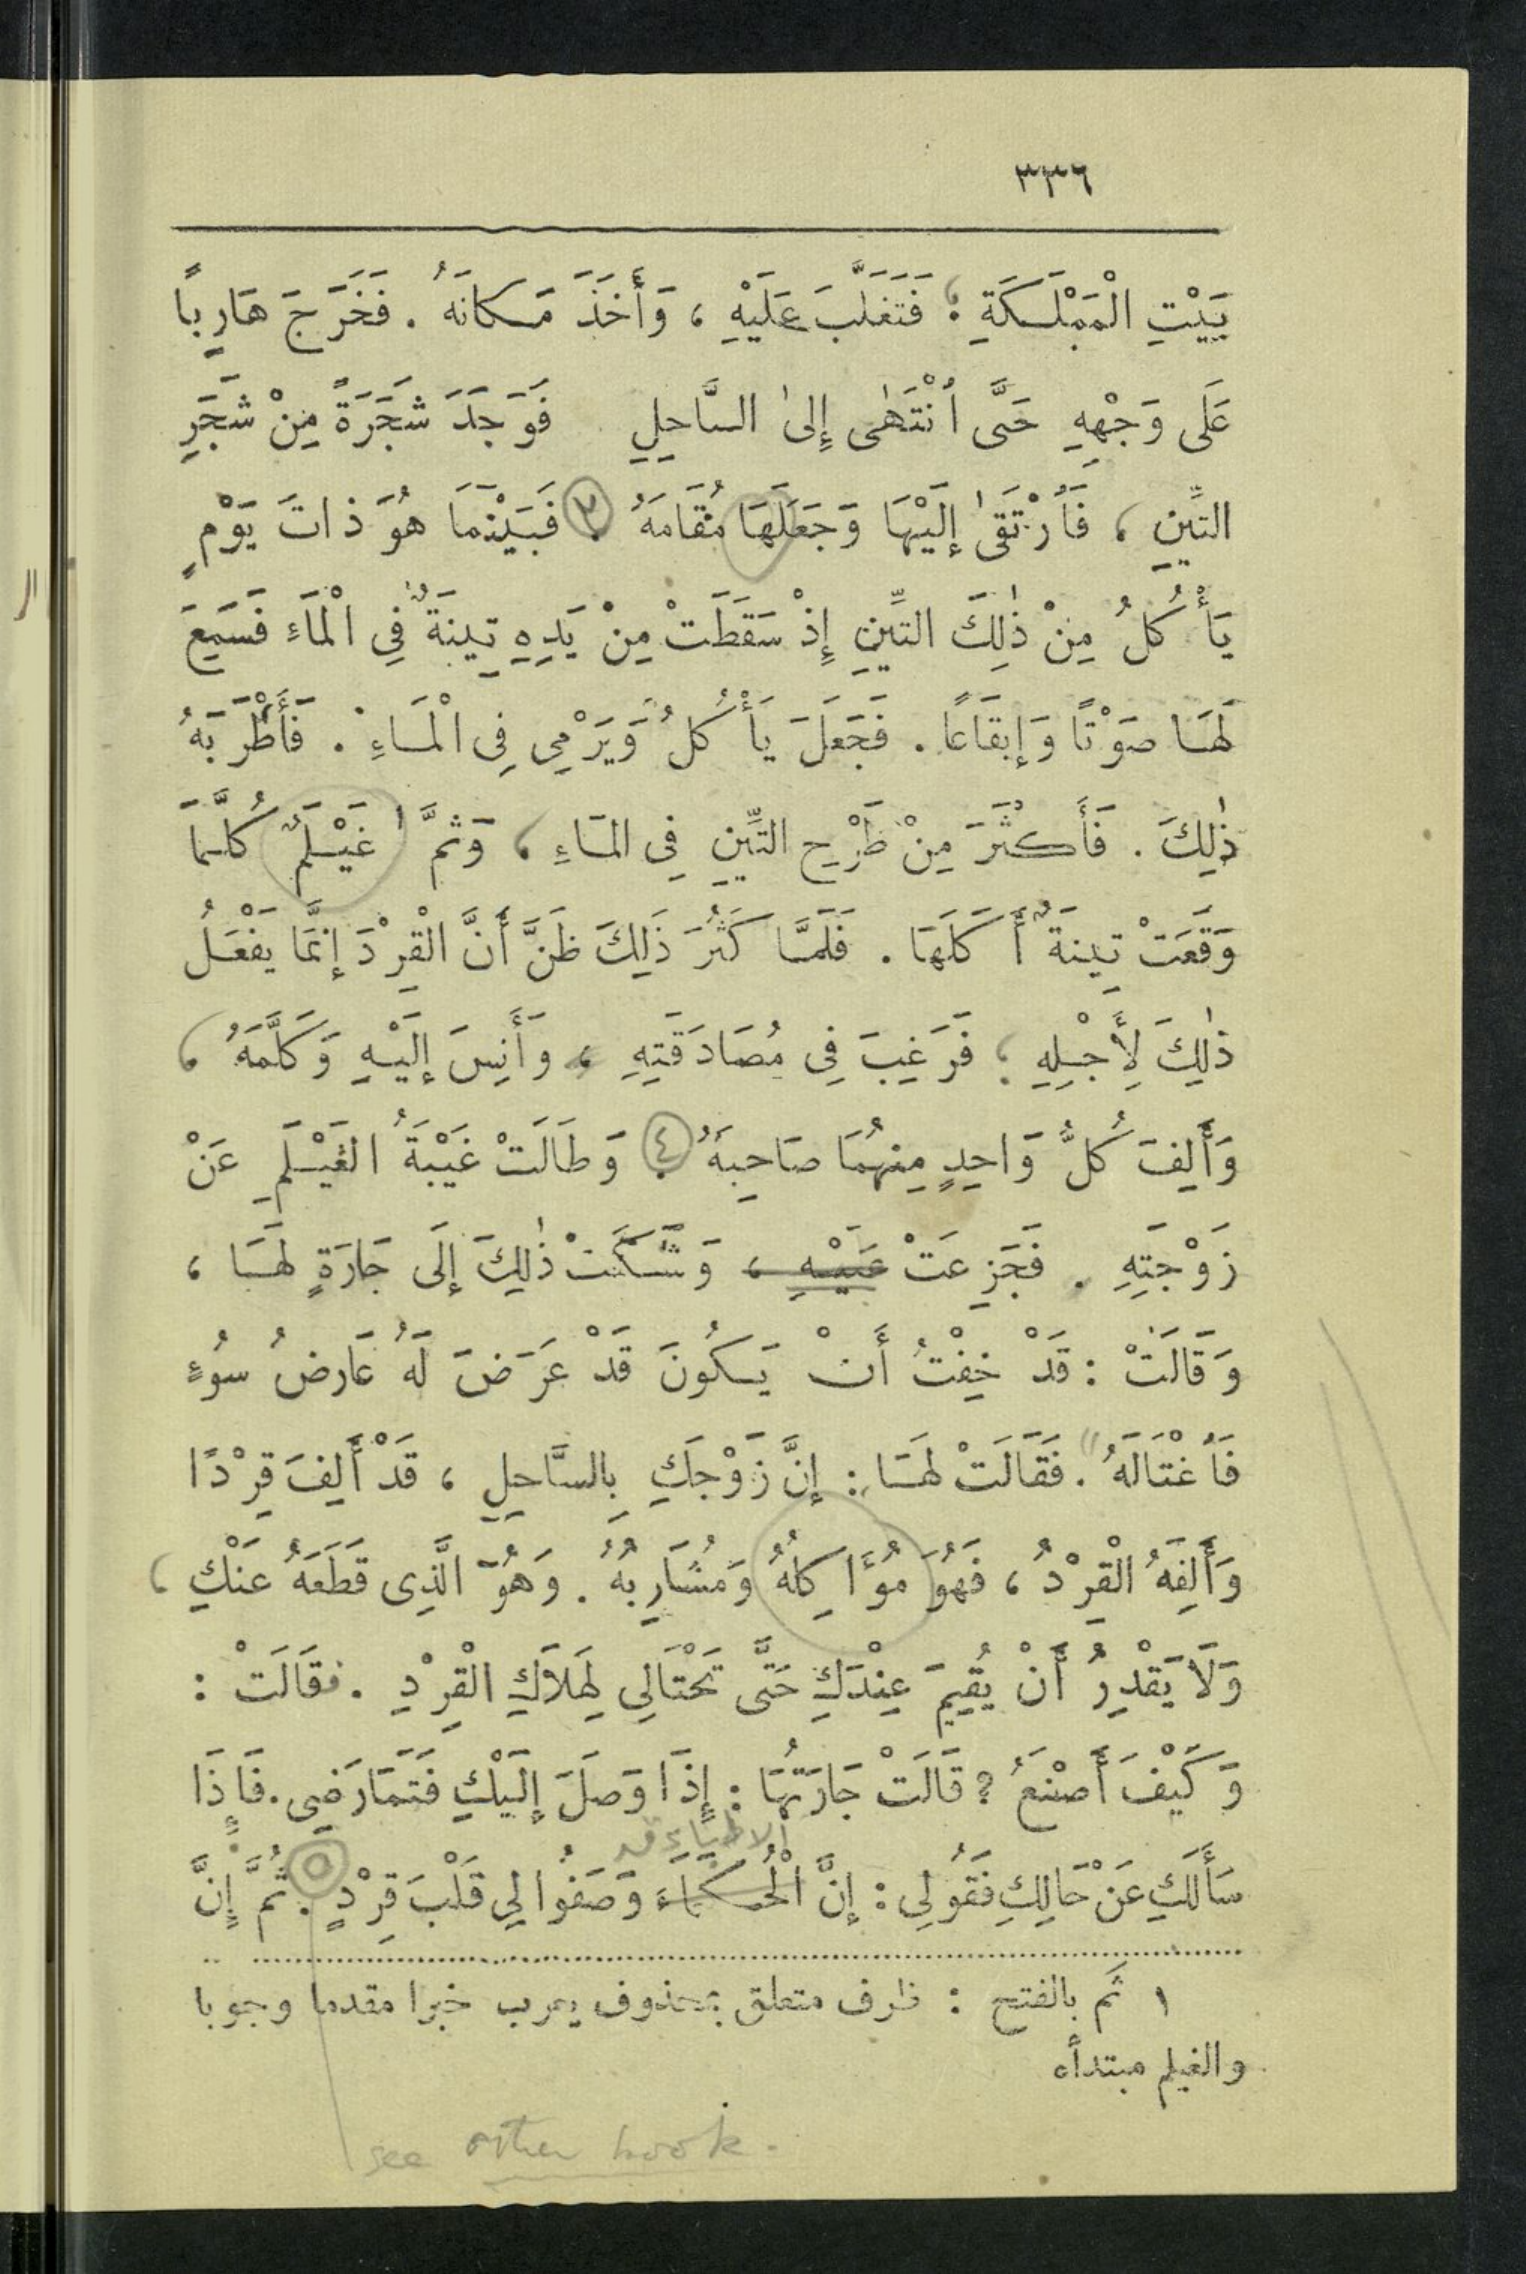 ٣٣٦
بَيْتِ الْمَمْلَكَةِ ؛ فَتَغَلَّبَ عَلَيْهِ ، وَأَخَذَ مَكَانَهُ . فَخَرَجَ هَارِبًا
عَلَى وَجْهِهِ حَتَّى اُنْتَهٰى إِلىٰ السَّاحِلِ فَوَجَدَ شَجَرَةً مِنْ شَجَرِ
التِّينِ ، فَاُرْتَقىٰ إِلَيْهَا وَجَعَلَهَا مُقَامَهُ . ٣ فَبَيْنَمَا هُوَ ذَاتَ يَوْمٍ
يَأْكُلُ مِنْ ذٰلِكَ التِّينِ إِذْ سَقَطَتْ مِنْ يَدِهِ تِينَةٌ فِي الْمَاءِ فَسَمِعَ
لَهَا صَوْتًا وَإِيقَاعًا . فَجَعَلَ يَأْكُلُ وَيَرْمِي فِى الْمَاءِ . فَأَطْرَبَهُ
ذٰلِكَ . فَأَكْثَرَ مِنْ طَرْحِ التِّينِ فِى المَاءِ ، وَثَمَّ ١ غَيْلَمٌ كُلَّمَا
وَقَعَتْ تِينَةٌ أَكَلَهَا . فَلَمَّا كَثُرَ ذَلِكَ ظَنَّ أَنَّ الْقِرْدَ إِنَّمَا يَفْعَلُ
ذٰلِكَ لِأَجْلِهِ ؛ فَرَغِبَ فِى مُصَادَقَتِهِ ، وَأَنِسَ إِلَيْهِ وَكَلَّمَهُ ،
وَأَلِفَ كُلُّ وَاحِدٍ مِنْهُمَا صَاحِبَهُ . ٤ وَطَالَتْ غَيْبَةُ الغَيْلَمِ عَنْ
زَوْجَتِهِ . فَجَزِعَتْ عَلَيْهِ ، وَشَكَتْ ذٰلِكَ إِلَى جَارَةٍ لَهَا ،
وَقَالَتْ : قَدْ خِفْتُ أَنْ يَكُونَ قَدْ عَرَضَ لَهُ عَارِضُ سُوءٍ
فَاُغْتَالَهُ . فَقَالَتْ لَهَا : إِنَّ زَوْجَكِ بِالسَّاحِلِ ، قَدْ أَلِفَ قِرْدًا
وَأَلِفَهُ الْقِرْدُ ، فَهُوَ مُؤَاكِلُهُ وَمُشَارِبُهُ . وَهُوَ الَّذِى قَطَعَهُ عَنْكِ ،
وَلَا يَقْدِرُ أَنْ يُقِيمَ عِنْدَكِ حَتَّى تَحْتَالِي لِهَلَاكِ الْقِرْدِ . فقَالَتْ :
وَكَيْفَ أَصْنَعُ ? قَالَتْ جَارَتُهَا : إِذَا وَصَلَ إِلَيْكِ فَتَمَارَضِي . فَإِذَا
الاطباء قد
سَأَلَكِ عَنْ حَالِكِ فَقُولِى : إِنَّ الْحُكَمَاءَ وَصَفُوا لِي قَلْبَ قِرْدٍ . ٥ ثُمَّ إِنَّ
١ ثَم بالفتح : ظرف متعلق بمحذوف يعرب خبرا مقدما وجوبا
والغيلم مبتدأ
see other book.